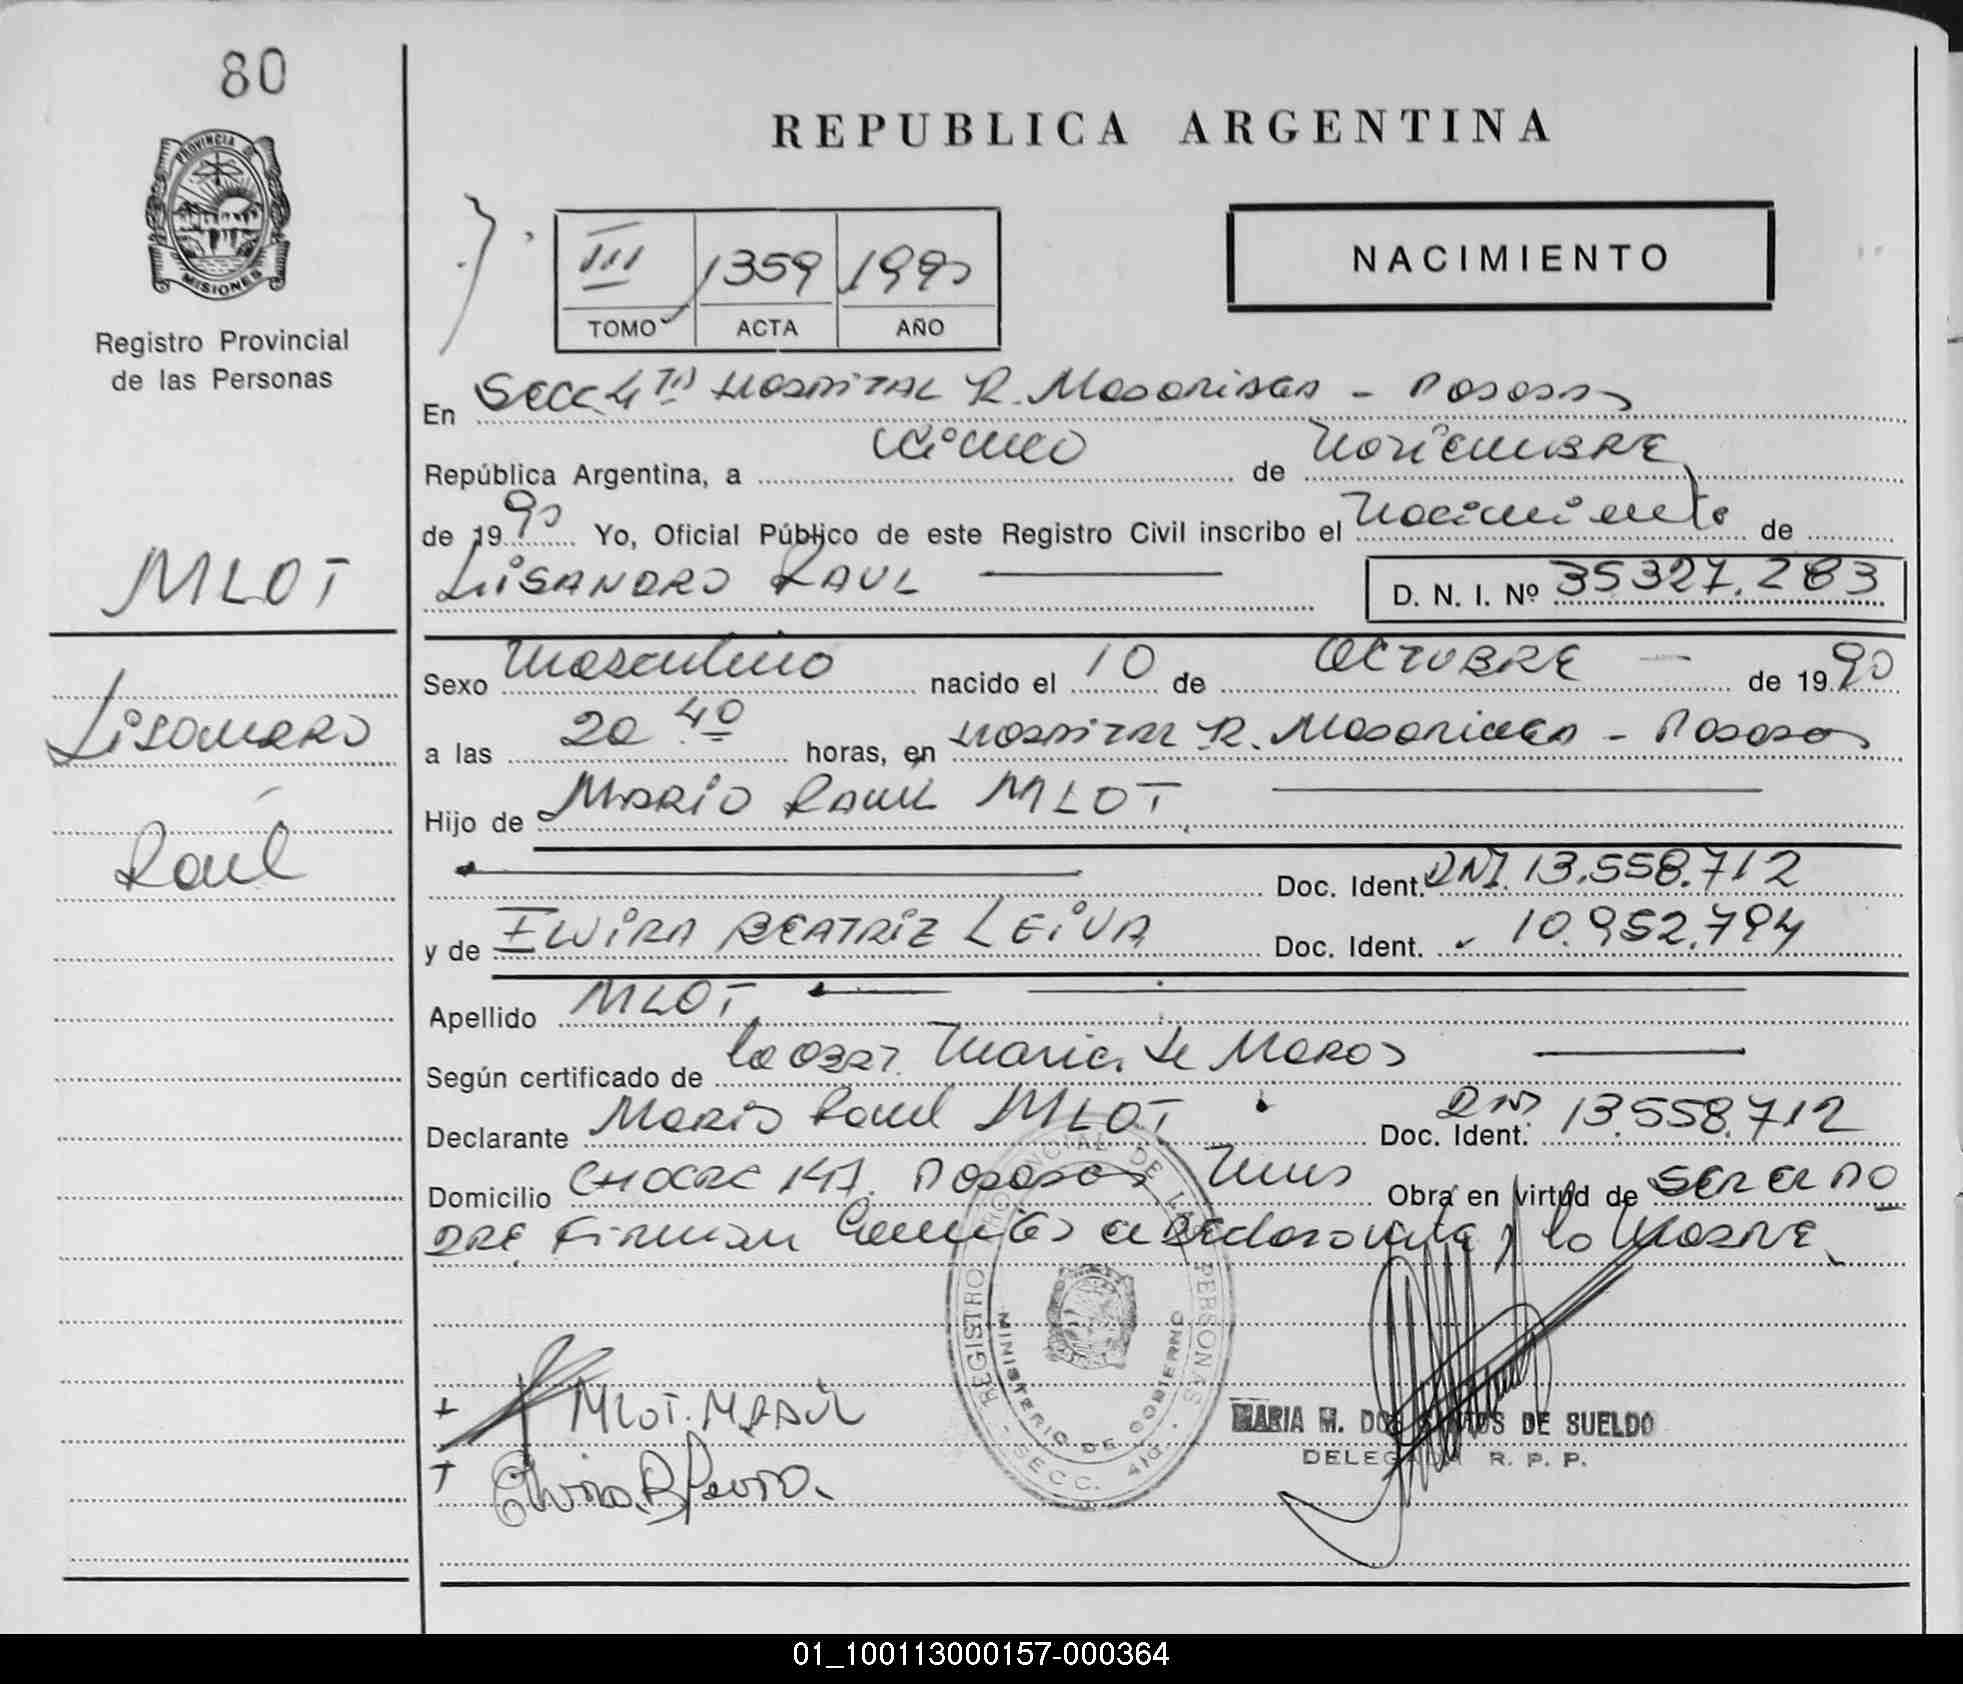 80
REPUBLICA ARGENTINA
PROVINCIA DE
MISIONES
Registro Provincial
de las Personas
III 1359 1990
TOMO ACTA AÑO
NACIMIENTO
En Secc 4ta Hospital R. Madariaga - Posadas
República Argentina, a cinco de Noviembre
de 1990 Yo, Oficial Público de este Registro Civil inscribo el Nacimiento de
Lisandro Raul
D. N. I. Nº 35327.283
MLOT
Lisandro
Raúl
Sexo Masculino nacido el 10 de Octubre de 1990
a las 20 40 horas, en Hospital R. Madariaga - Posadas
Hijo de Mario Raul MLOT
Doc. Ident. DNI. 13.558.712
y de Elvira Beatriz Leiva Doc. Ident. 10.952.794
Apellido MLOT
Según certificado de la Obst. Maria de
Declarante Mario Raul MLOT Doc. Ident. DNI 13.558.712
Domicilio Chacra 147. Posadas Mnes Obra en virtud de ser el pa
dre Firman el declarante y la Madre
REGISTRO PROVINCIAL DE LAS PERSONAS
MINISTERIO DE GOBIERNO
SECC. 4ta.
MLOT. M. RAÚL
Elvira B Leiva.
MARIA M. DOS SANTOS DE SUELDO
DELEGADA R. P. P.
01_100113000157-000364